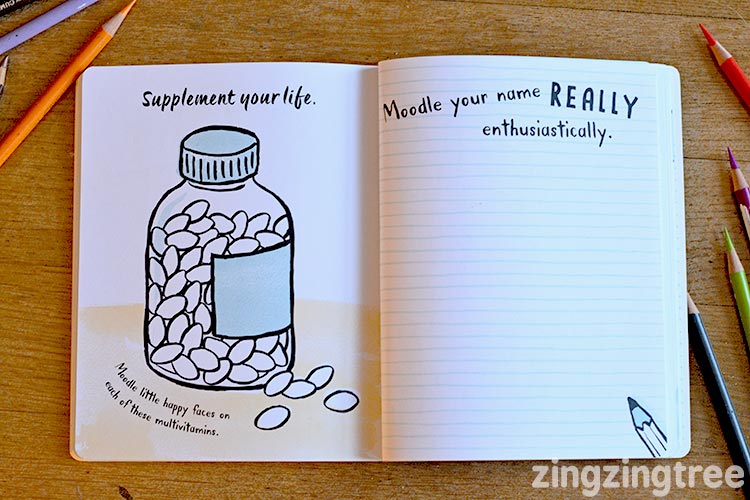 Supplement your life.
Moodle little happy faces on
each of these multivitamins.
Moodle your name REALLY
enthusiastically.
zingzingtree